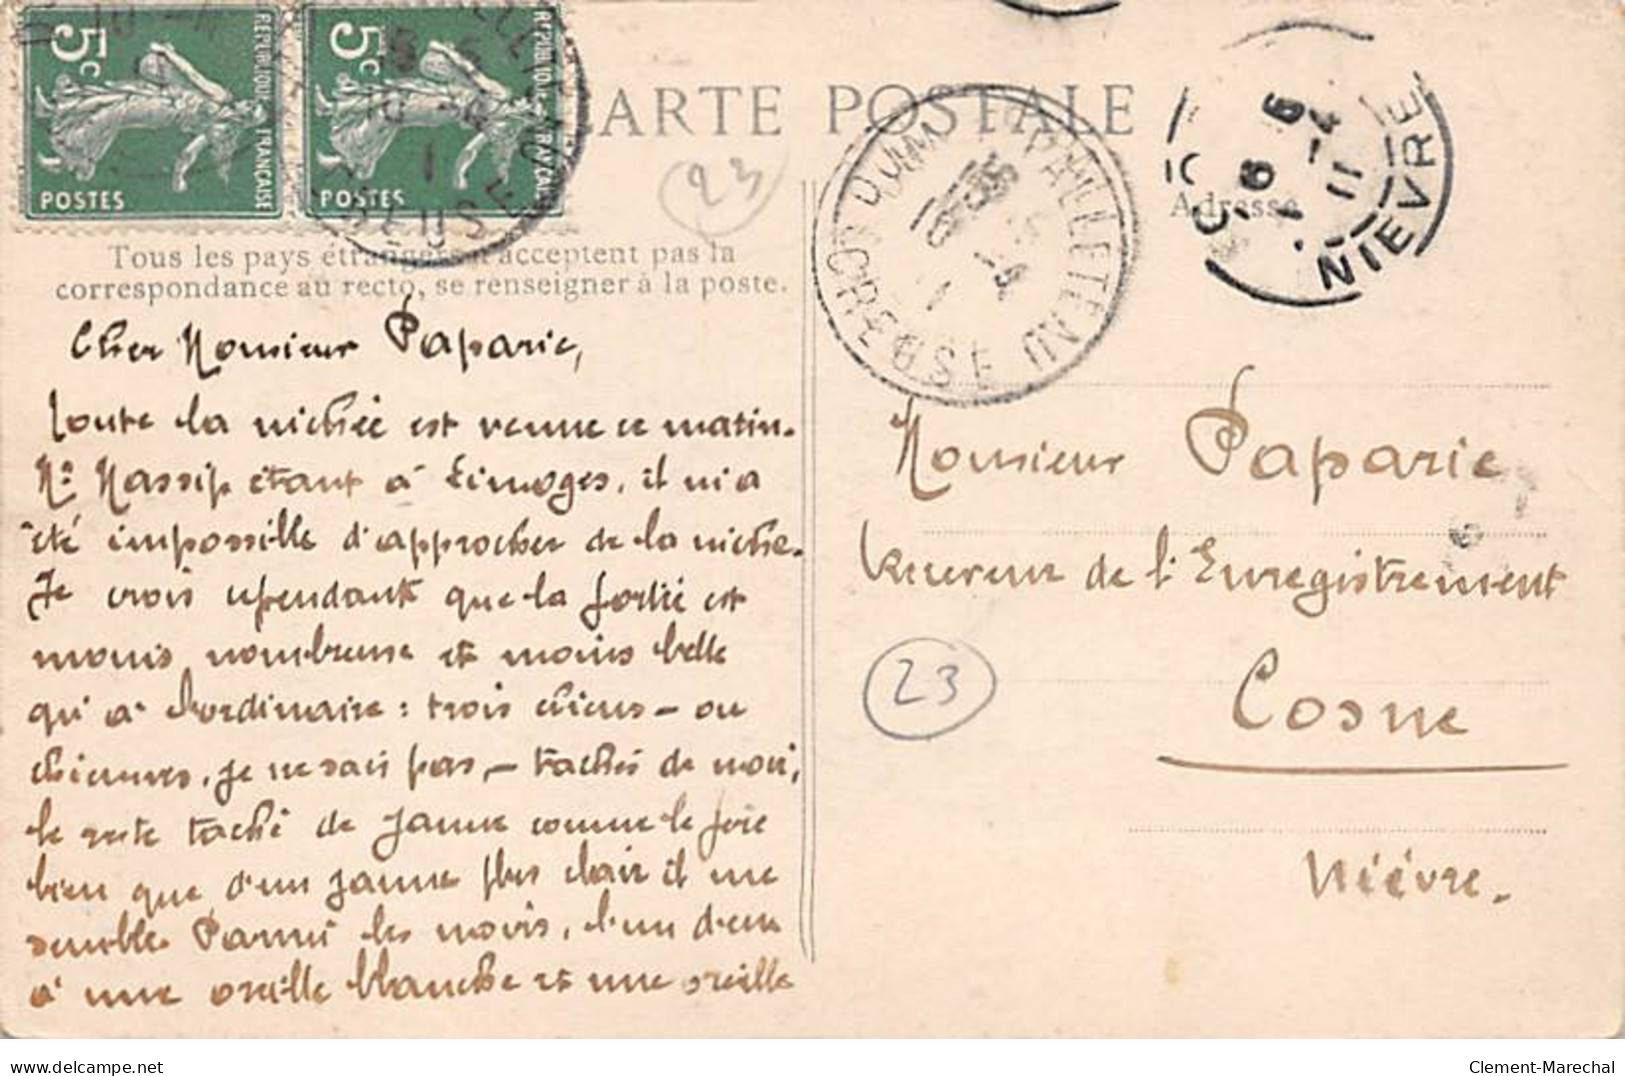 5c
RÉPUBLIQUE FRANÇAISE
POSTES
5c
RÉPUBLIQUE FRANÇAISE
POSTES
CREUSE
CARTE POSTALE
23
DUN LE PALLETEAU
CREUSE
6 5
1 - 4
11
NIEVRE
Adresse
Tous les pays étrangers n'acceptent pas la
correspondance au recto, se renseigner à la poste.
Cher Monsieur Paparic,
Toute la nichée est venue ce matin.
Mr Massip étant à Limoges, il m'a
été impossible d'approcher de la niche.
Je crois cependant que la portée est
moins nombreuse et moins belle
qu'à l'ordinaire : trois chiens - ou
chiennes, je ne sais pas, - tachés de noir,
le reste taché de jaune comme le foie
bien que d'un jaune plus clair il me
semble. Parmi les noirs, l'un d'eux
a une oreille blanche et une oreille
Monsieur Paparic
Receveur de l'Enregistrement
23
Cosne
Nièvre.
delcampe.net
Clement-Marechal